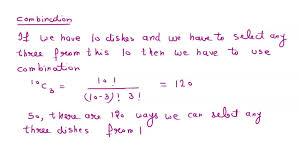 Combination
If we have 10 dishes and we have to select any
three from this 10 then we have to use
combination
¹⁰C₃ = 10! / (10-3)! 3! = 120
So, there are 120 ways we can select any
three dishes from 1